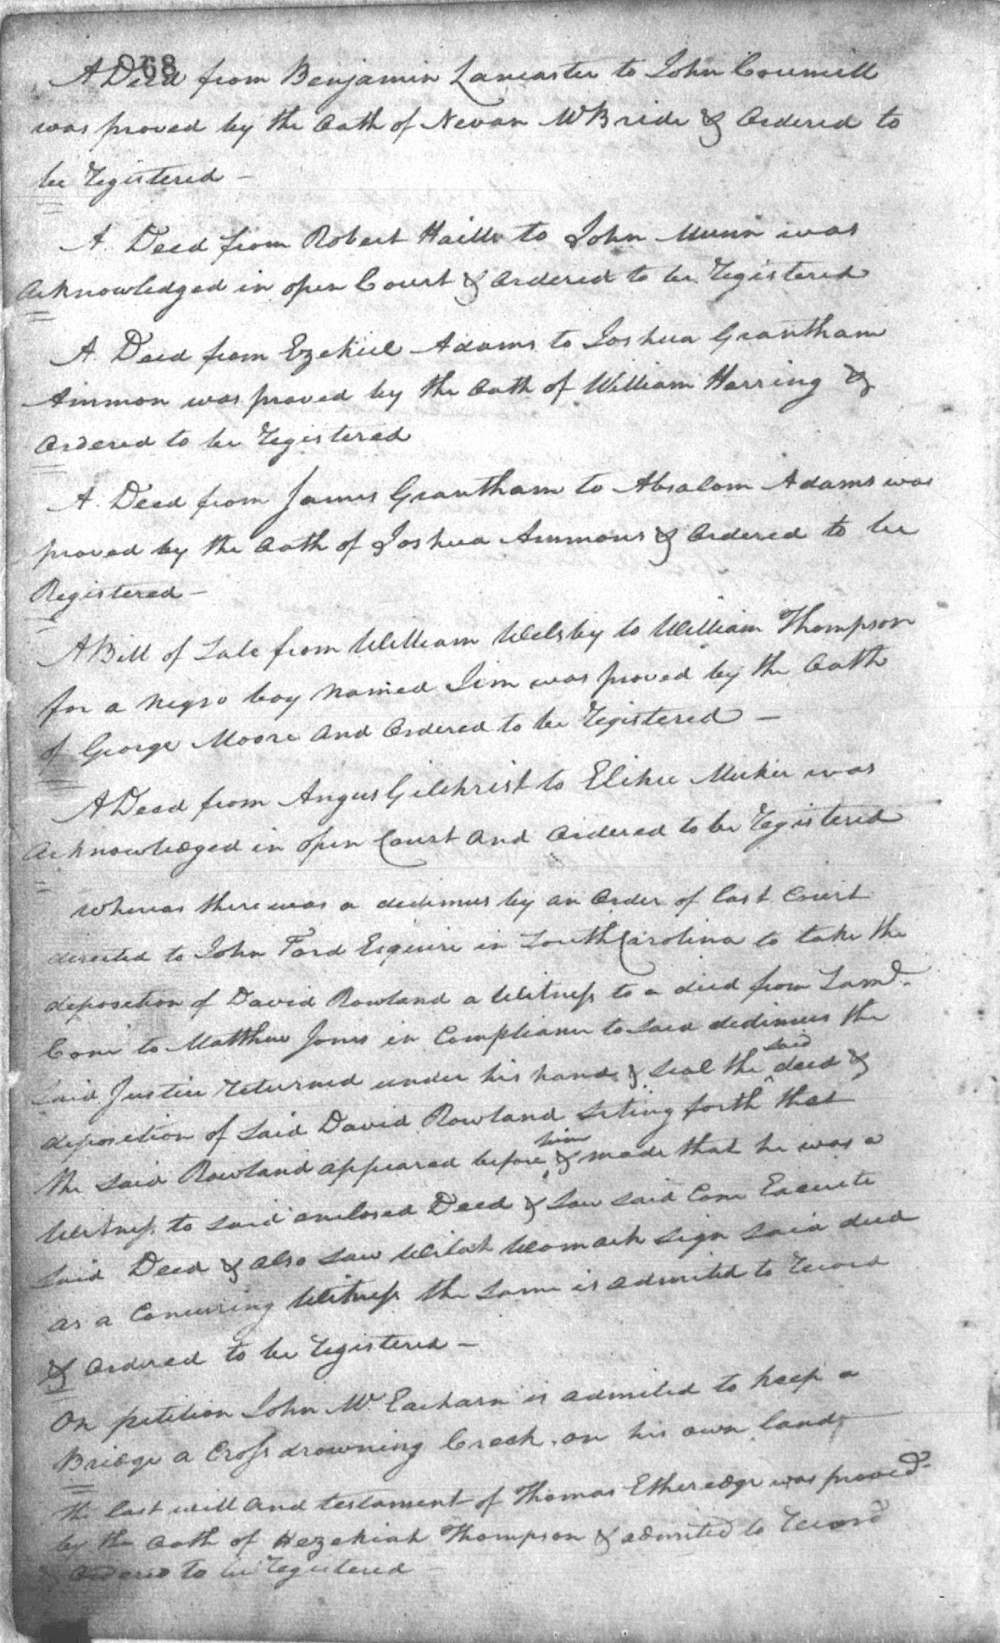 068
A Deed from Benjamin Lancaster to John Councill
was proved by the Oath of Nevan McBride & Ordered to
be Registered –
A Deed from Robert Hails to John Munn was
Acknowledged in open Court & Ordered to be Registered
A Deed from Ezekiel Adams to Joshua Grantham
Ammon was proved by the Oath of William Herring &
Ordered to be Registered
A Deed from James Grantham to Absalom Adams was
proved by the Oath of Joshua Ammons & Ordered to be
Registered –
A Bill of Sale from William Welsby to William Thompson
for a negro boy named Jim was proved by the Oath
of George Moore And Ordered to be Registered –
A Deed from Angus Gilchrist to Elihu Meeker was
Acknowledged in open Court And Ordered to be Registered
Whereas there was a dedimus by an Order of last Court
directed to John Ford Esquire in South Carolina to take the
deposetion of David Rowland a Witness to a deed from Saml.
Cone to Matthew Jones in Compliance to said dedimus the
said Justice returned under his hand & seal the said deed &
deposetion of said David Rowland Seting forth that
the said Rowland appeared before him & made that he was a
Witness to said enclosed Deed & Saw said Cone Execute
said Deed & also saw Womack sign said deed
as a Concurring Witness the Same is admited to Record
& Ordered to be Registered –
On petition John McEacharn is admited to keep a
Bridge a Cross drowning Creek on his own land
the last will and testament of Thomas Etheredge was proved
by the Oath of Hezekiah Thompson & admited to Record
& Ordered to be Registered –